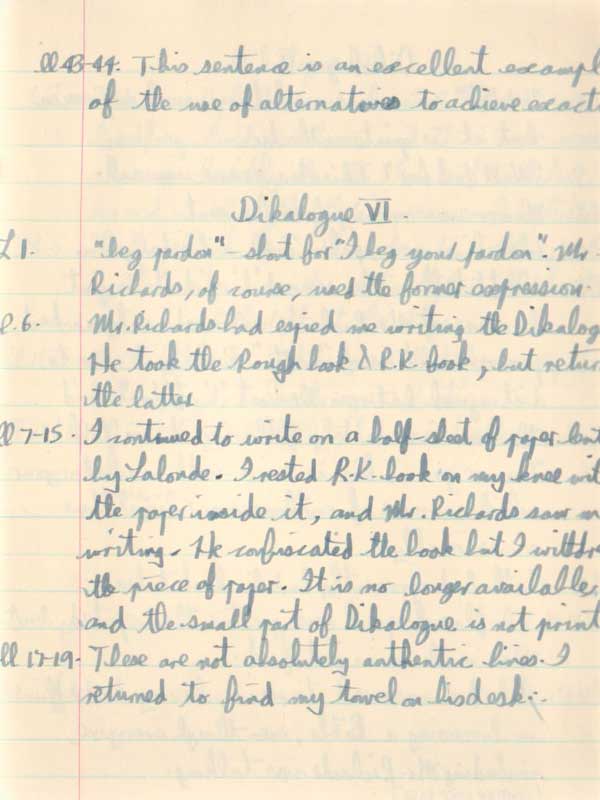 ll 43-44: This sentence is an excellent exampl
of the use of alternatives to achieve exact
Dikalogue VI.
L 1. "beg pardon" - short for "I beg your pardon". Mr.
Richards, of course, used the former expression.
l. 6. Mr. Richards had espied me writing the Dikalog
He took the Rough book & R.K. book, but retur
the latter
ll 7-15. I continued to write on a half-sheet of paper lent
by Lalonde. I rested R.K. book on my knee wit
the paper inside it, and Mr. Richards saw m
writing. He confiscated the book but I withdr
the piece of paper. It is no longer available,
and the small part of Dikalogue is not print
ll 17-19. These are not absolutely authentic lines. I
returned to find my towel on his desk